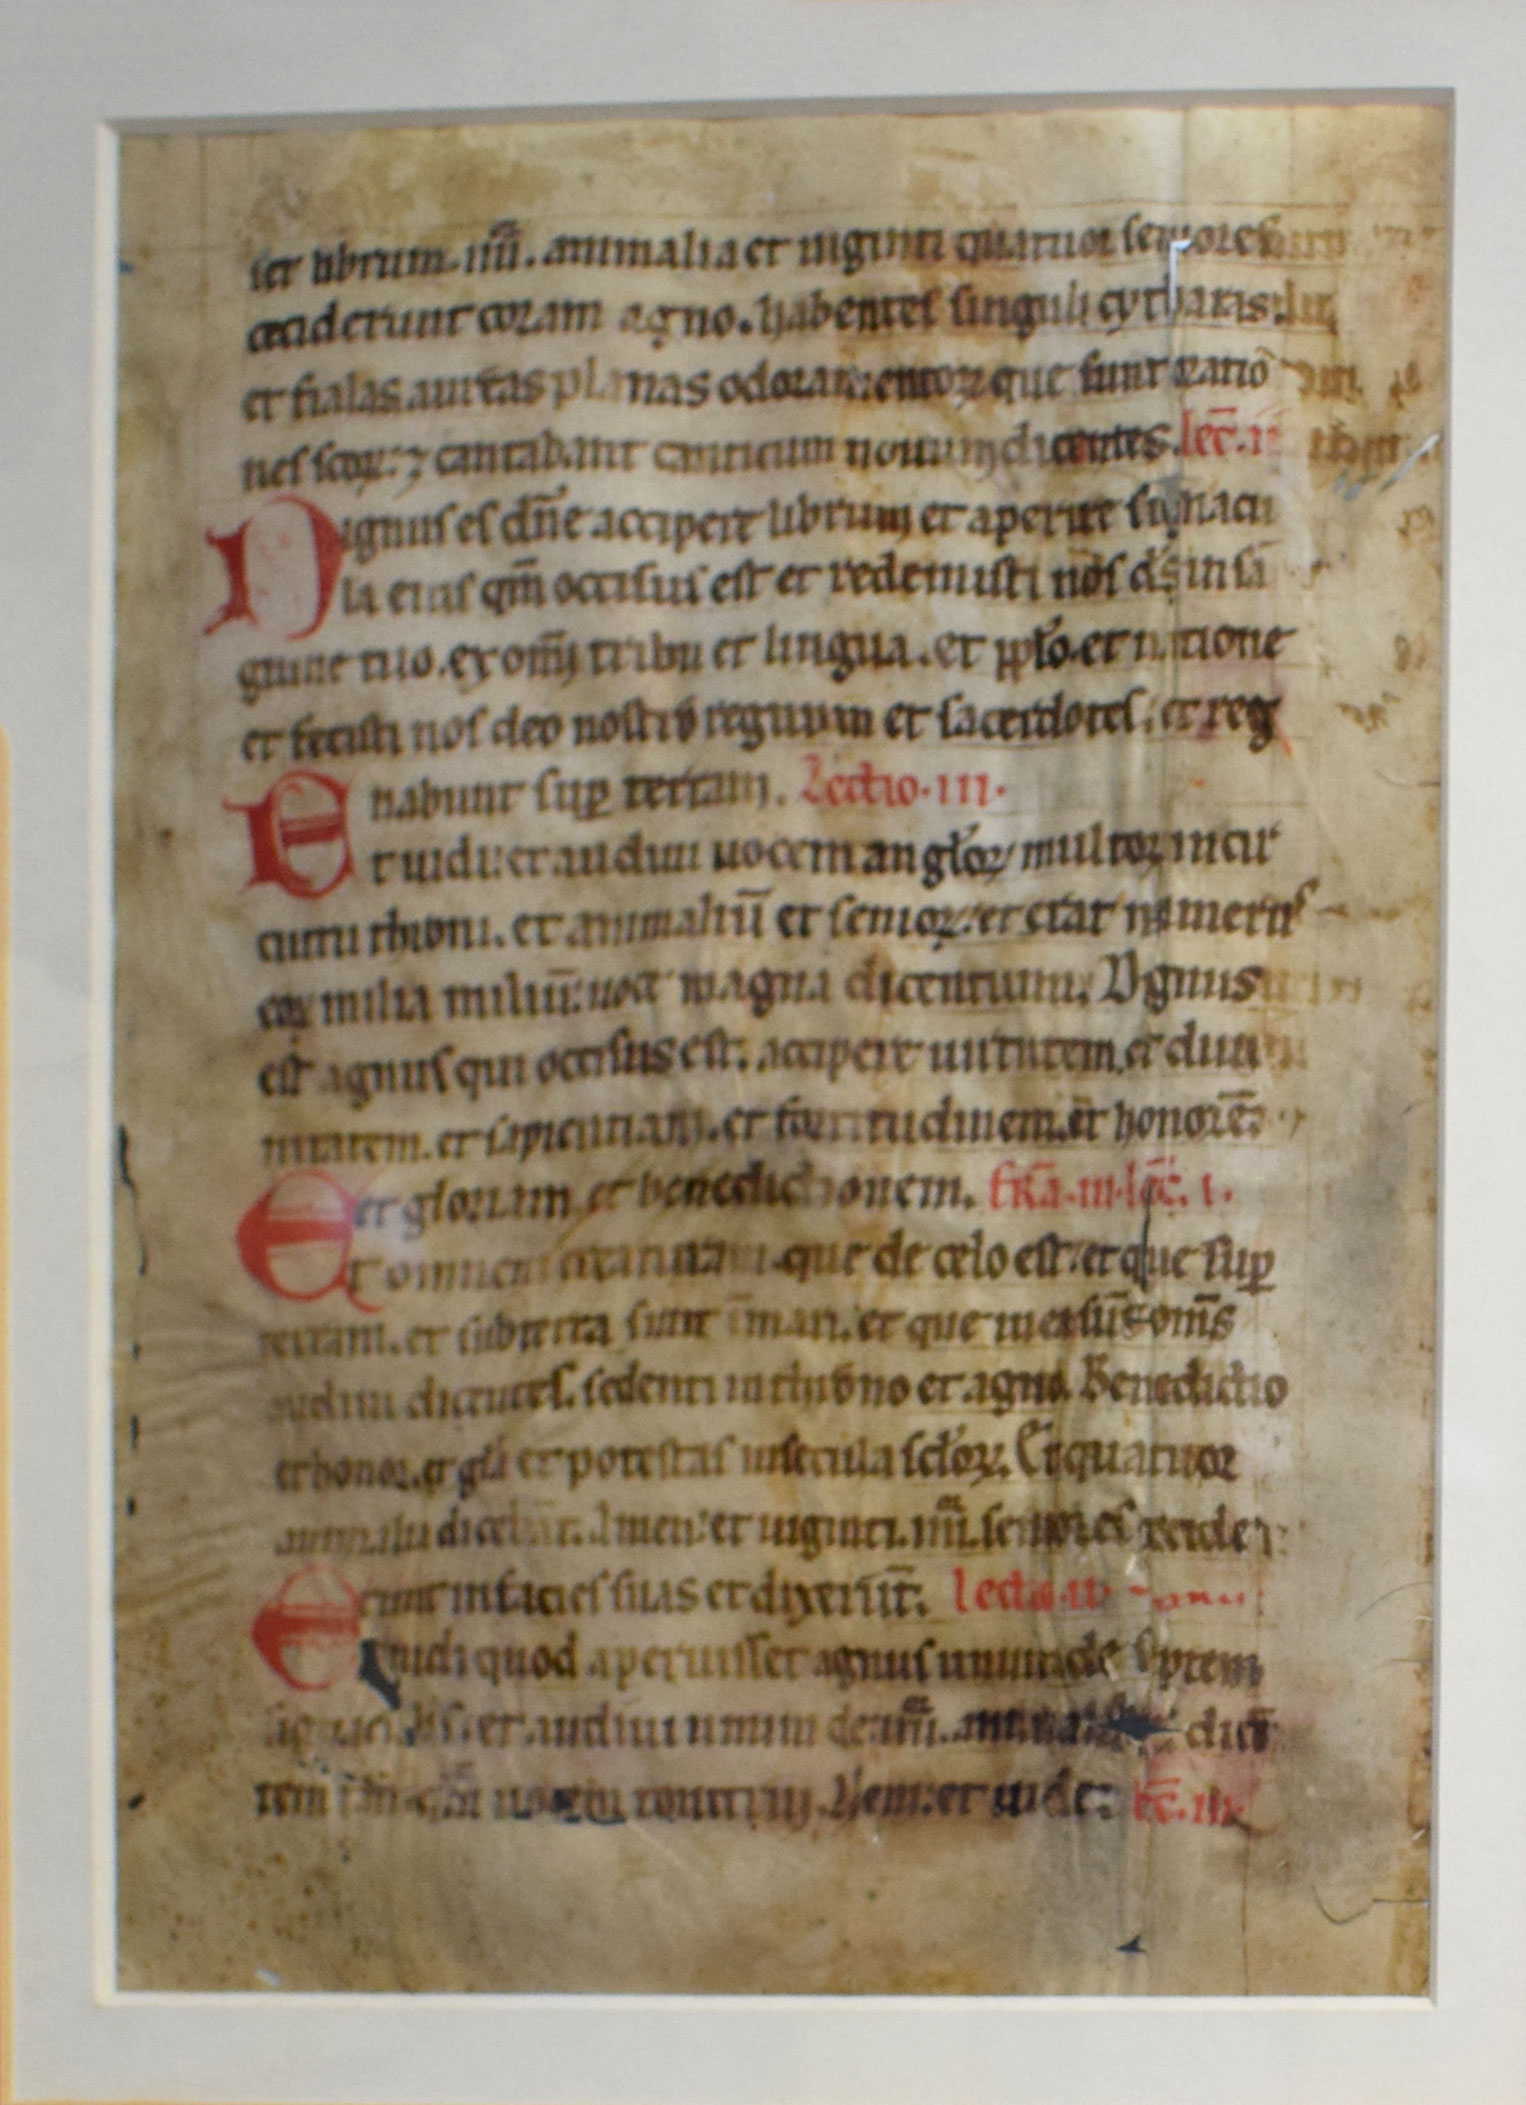 set librum. iiii. animalia et uiginti quatuor seniores
ceciderunt coram agno. habentes singuli cytharas.
et fialas aureas plenas odoramentoꝝ que sunt oratiō
nes scōꝝ: ⁊ cantabant canticum nouum dicentes. lec̄. ii
Dignus es dn̄e accipere librum et aperire signacu
la eius qm̄ occisus est et redemisti nos ds̄ in sā
guine tuo. ex om̄i tribu et lingua. et pplo. et natione
et fecisti nos deo nostro regnum et sacerdotes. et reg
nabunt suꝑ terram. Lectio. iii.
Et uidi: et audiui uocem angl̄oꝝ multoꝝ in cir
cuitu throni. et animaliū et senioꝝ: et erat numerus
eoꝝ milia miliū: uoce magna dicentium. Dignus
est agnus qui occisus est. accipere uirtutem. et diui
nitatem. et sapientiam. et fortitudinem. et honorē:
et gloriam et benedictionem. fr̄a. iii. lec̄. i.
Et omnem creaturam. que de celo est. et que suꝑ
terram. et sub terra sunt ī mari. et que in ea sūt: om̄s
audiui dicentes. sedenti in throno et agno. Benedictio
et honor. et gl̄a et potestas in secula scl̄oꝝ. Et quatuor
animalia dicebant. Amen: et uiginti. iiii. seniores cecide
runt in facies suas et dixerūt. Lectio. ii
Et uidi quod aperuisset agnus unum de septem
signaculis. et audiui unum de. iiii. animalibus dicē
tem tonitrui. Veni: et uide: lec̄. iii.